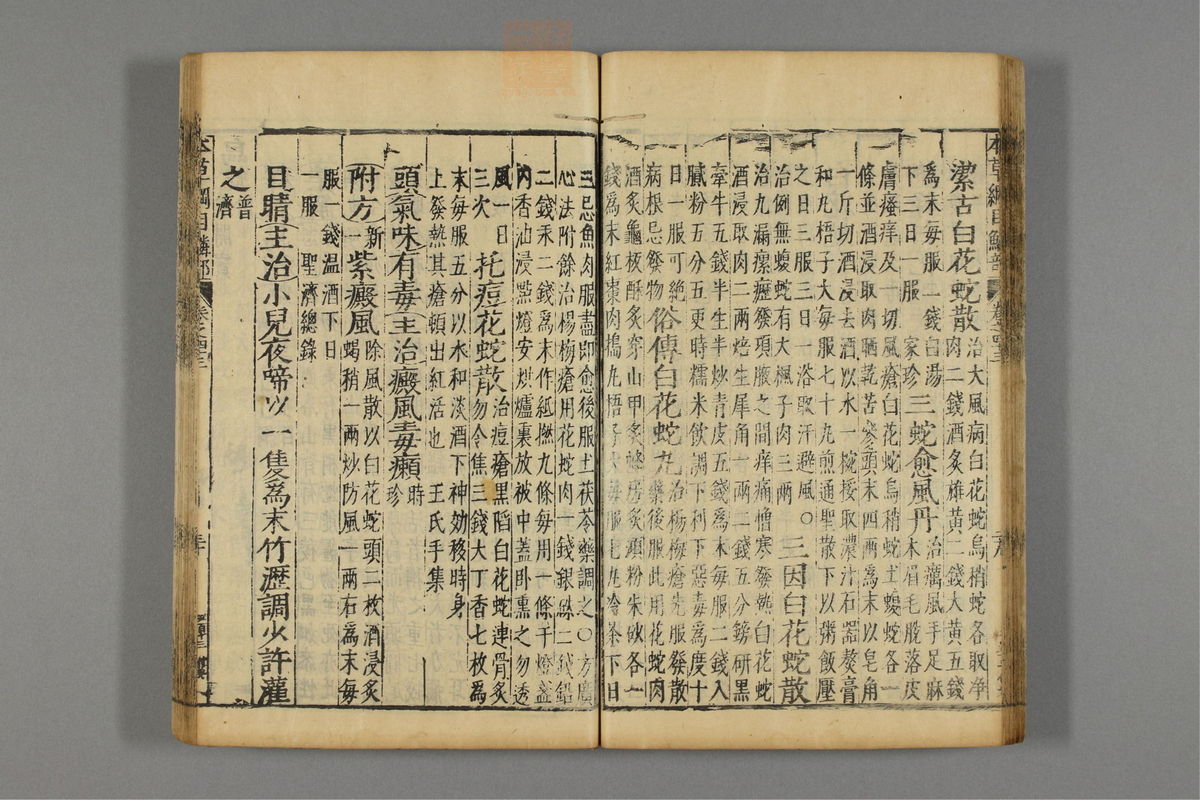 本草綱目鱗部 卷之四三
潔古白花蛇散治大風病白花蛇烏稍蛇各取净
肉二錢酒炙雄黃二錢大黃五錢
為末每服一錢白湯
下三日一服 家珍 三蛇愈風丹治癘風手足麻
木眉毛脫落皮
膚瘙痒及一切風瘡白花蛇烏稍蛇土蝮蛇各一
條並酒浸取肉晒乾苦參頭末四兩為末以皂角
一斤切酒浸去酒以水一椀挼取濃汁石器熬膏
和丸梧子大每服七十丸煎通聖散下以粥飯壓
之日三服三日一浴取汗避風○三因白花蛇散
治例無蝮蛇有大楓子肉三兩
治九漏瘰癧發項腋之間痒痛憎寒發熱白花蛇
酒浸取肉二兩焙生犀角一兩二錢五分鎊研黑
牽牛五錢半生半炒青皮五錢為末每服二錢入
膩粉五分五更時糯米飲調下利下惡毒為度十
日一服可絕
病根忌發物 俗傳白花蛇丸治楊梅瘡先服發散
藥後服此用花蛇肉
酒炙龜板酥炙穿山甲炙蜂房炙汞粉朱砂各一
錢為末紅棗肉搗丸梧子大每服七丸冷茶下日
三忌魚肉服盡即愈後服土茯苓藥調之○方廣
心法附餘治楊梅瘡用花蛇肉一錢銀硃二錢鉛
二錢汞二錢為末作紙撚九條每用一條于燈盞
內香油浸㸃燈安烘爐裏放被中蓋卧熏之勿透
風一日
三次 托痘花蛇散治痘瘡黑陷白花蛇連骨炙
勿令焦三錢大丁香七枚為
末每服五分以水和淡酒下神効移時身
上發熱其瘡頓出紅活也 王氏手集
頭氣味有毒主治癜風毒癩時
珍
附方新一紫癜風除風散以白花蛇頭二枚酒浸炙
蝎稍一兩炒防風一兩右為末每
服一錢溫酒下日
一服 聖濟總錄
目睛主治小兒夜啼以一隻為末竹瀝調少許灌
之普
濟
本草綱目鱗部 卷之四三